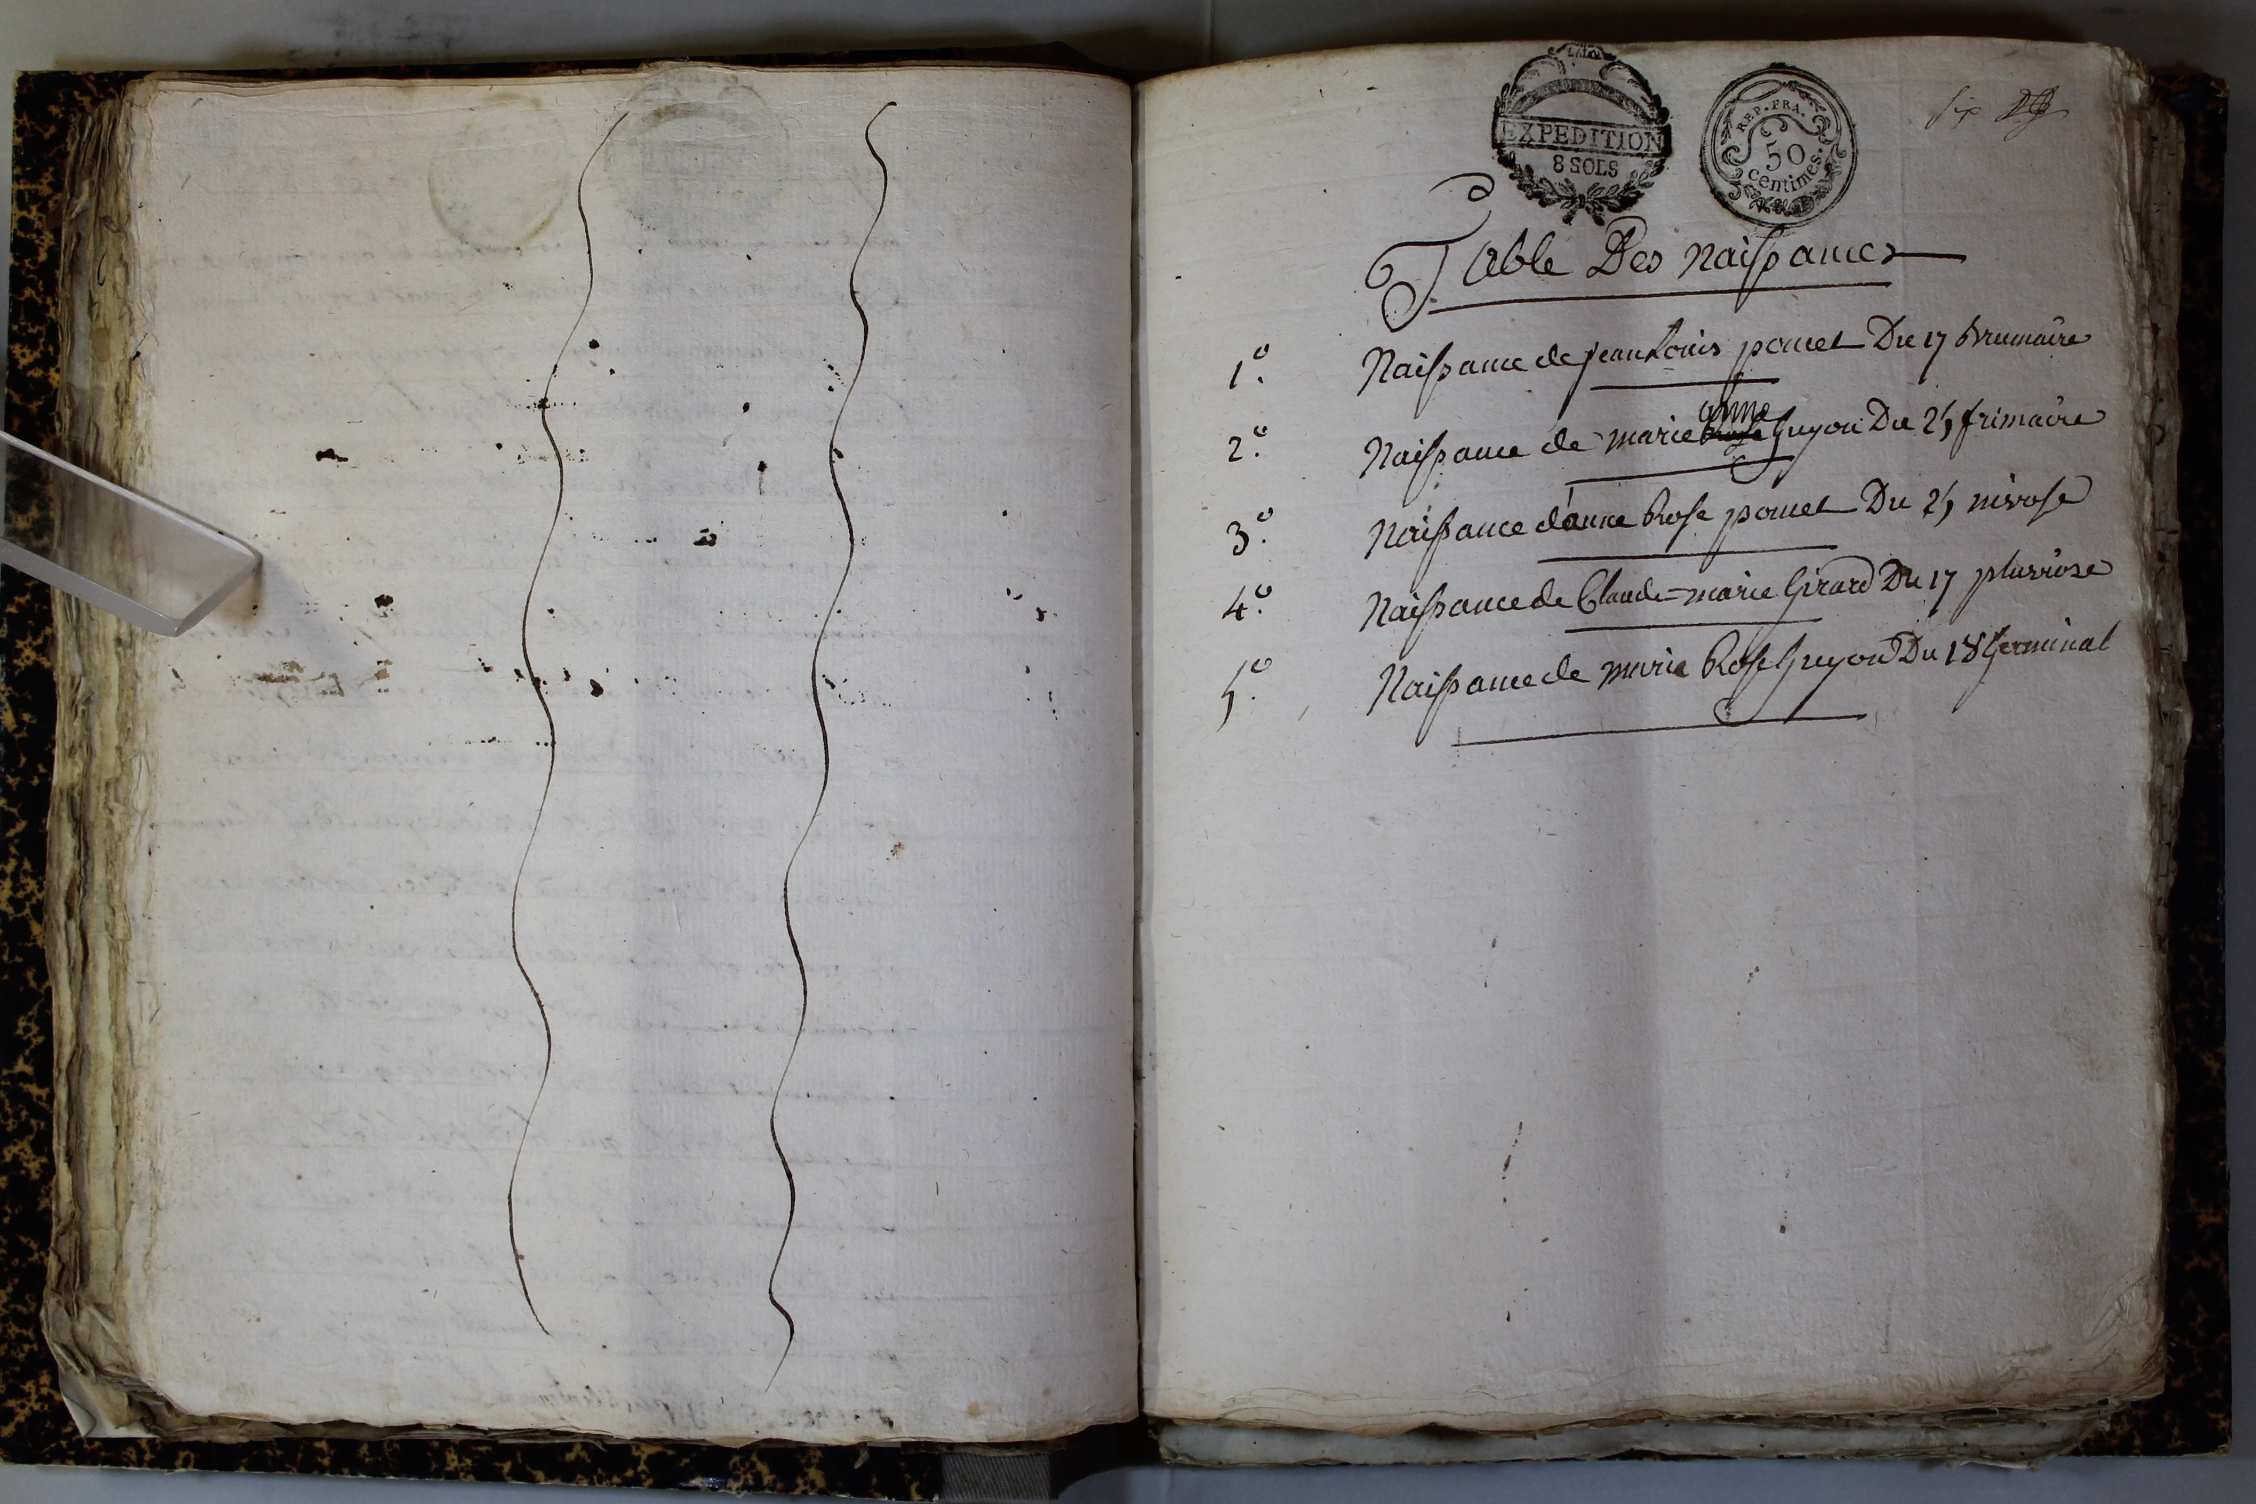 LA LOI
EXPEDITION
8 SOLS
REP. FRA.
50
centimes.
six
Table Des Naissances
1.° Naissance de jean Louis poncet Du 17 Brumaire
anne
2.° Naissance de marie Rose Guyon Du 25 frimaire
3.° Naissance d'anne Rose poncet Du 25 nivose
4.° Naissance de Claude=marie Girard Du 17 pluviose
5.° Naissance de marie Rose Guyon Du 18 Germinal